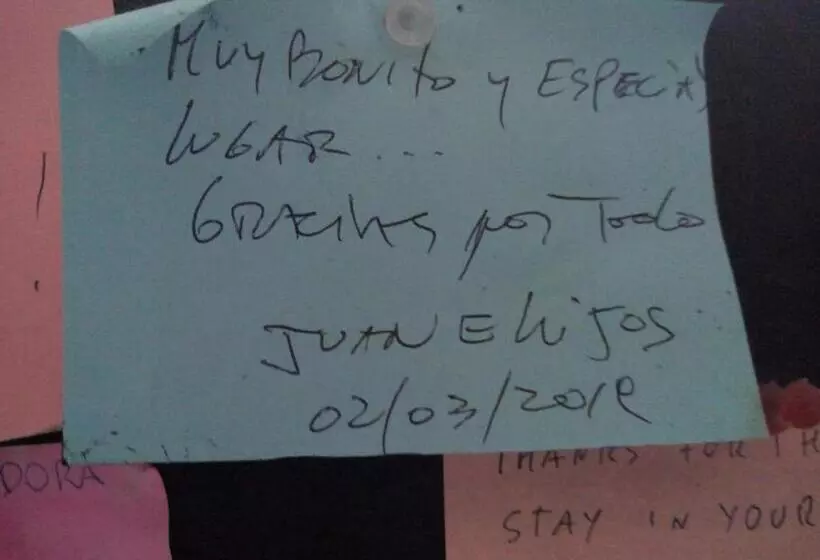 MUY BONITO y ESPECIAL
LUGAR...
GRACIAS por Todo
JUAN E HIJOS
02/03/2019
DORA
THANKS FOR TH
STAY IN YOUR